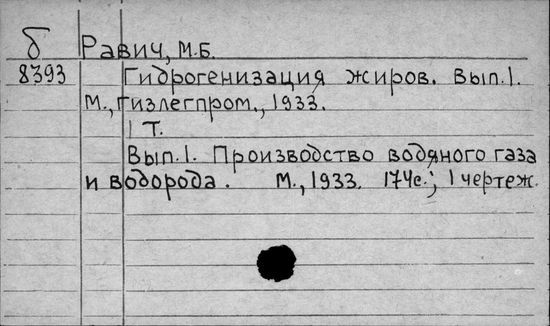 б Равич, М.Б.
8393 Гидрогенизация жиров. Вып.1.
М., Гизлегпром., 1933.
1 Т.
Вып.1. Производство водяного газа
и водорода. М., 1933. 174с.; 1 чертеж.